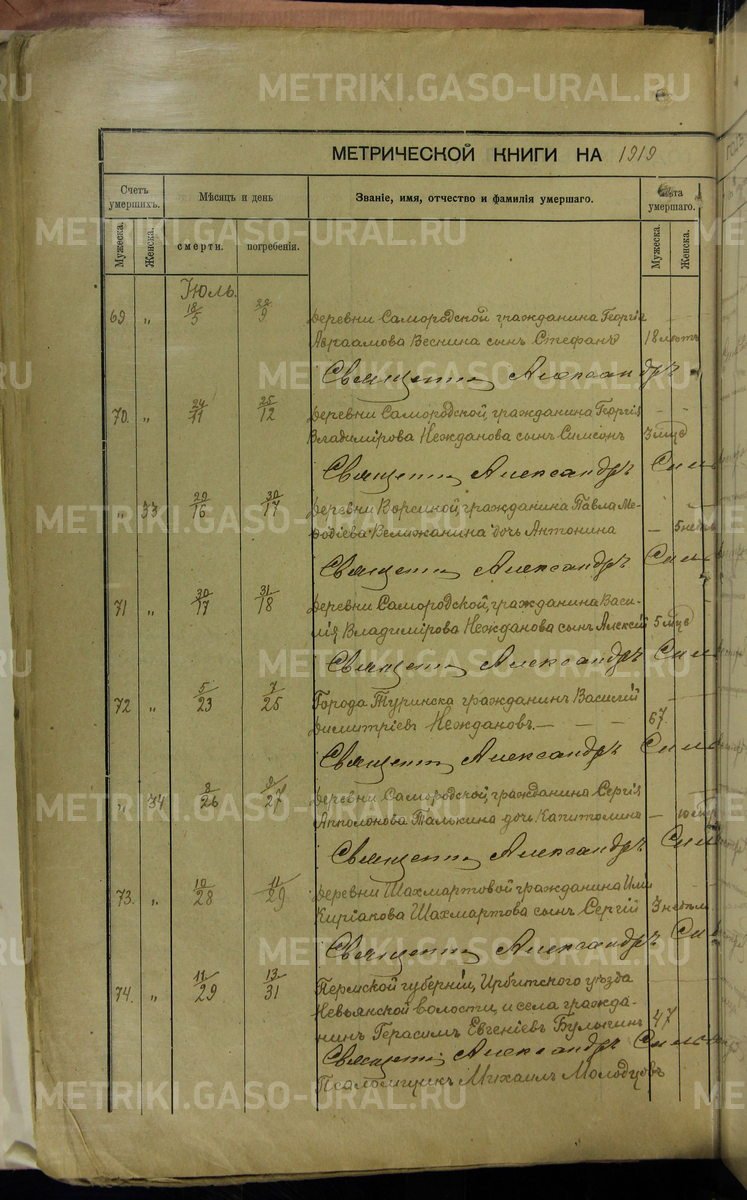 METRIKI.GASO-URAL.RU
МЕТРИЧЕСКОЙ КНИГИ НА 1919
Счетъ умершихъ.
Мѣсяцъ и день
Званіе, имя, отчество и фамилія умершаго.
Лѣта умершаго.
Мужеска.
Женска.
смерти.
погребенія.
Мужеска.
Женска.
Іюль.
69 " 18/5 22/9 Деревни Самородской гражданина Георгія
Авраамова Веснина сынъ Стефанъ 18 лѣтъ
Священникъ Александръ
70. " 24/11 25/12 Деревни Самородской, гражданина Георгія
Владимірова Нежданова сынъ Симеонъ 3 мѣс
Священникъ Александръ
" 33 29/16 30/17 Деревни Ворсиной, гражданина Павла Ме-
ѳодіева Велижанина дочь Антонина — 5 недѣль
Священникъ Александръ
71 " 30/17 31/18 Деревни Самородской, гражданина Васи-
лія Владимірова Нежданова сынъ Алексѣй 5 мѣс
Священникъ Александръ
72 " 5/23 7/25 Города Туринска гражданинъ Василій
Димитріевъ Неждановъ. — — — 67.
Священникъ Александръ
" 34 8/26 9/27 Деревни Самородской, гражданина Сергія
Апполонова Талькина дочь Капитолина — 10 мѣс
Священникъ Александръ
73. " 10/28 11/29 Деревни Шахмартовой гражданина
Киріакова Шахмартова сынъ Сергій 3 недѣли
Священникъ Александръ
74. " 11/29 13/31 Пермской губерніи, Ирбитского уѣзда
Невьянской волости и села гражда-
нинъ Герасимъ Евгеніевъ Булыгинъ 47
Священникъ Александръ
Псаломщикъ Михаилъ Молодцовъ